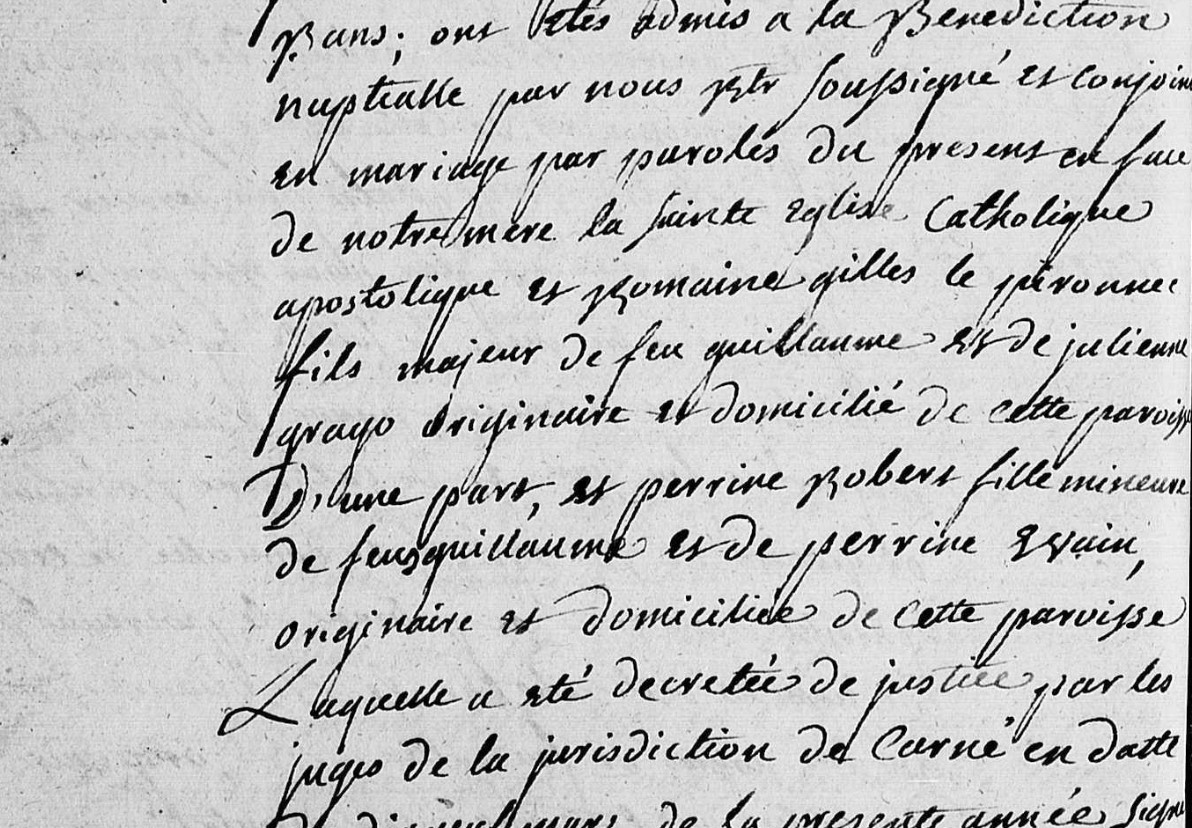 Bans; ont étés admis a la Benediction
nuptialle par nous ptr soussigné et conjoin
en mariage par parolés du present en face
de notre mere la sainte eglise Catholique
apostolique et Romaine gilles le péronne
fils majeur de feu guillaume et de julienne
grayo originaire et domicilié de cette paroisse
D'une part, et perrine Robert fille mineure
de feu guillaume et de perrine Evain,
originaire et domiciliée de cette paroisse
Laquelle a eté decretée de justice par les
juges de la jurisdiction de Carné en datte
mars de la presente année signé